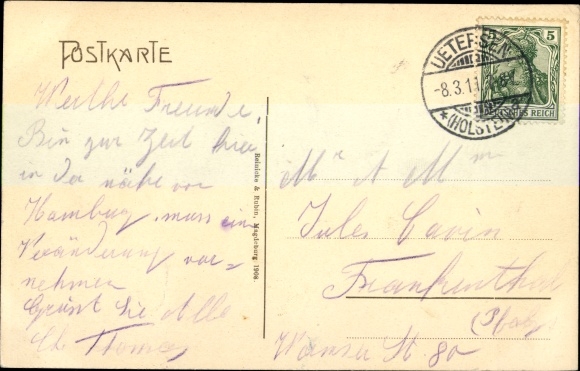 POSTKARTE
Werthe Freunde,
Bin zur Zeit hier
in der nähe von
Hamburg, muss eine
Veränderung vor=
nehmen
Grüsst Sie Alle
Thomas
Reinicke & Rubin, Magdeburg 1908.
UETERSEN
-8.3.11
*(HOLSTEIN)*
5
DEUTSCHES REICH
Mr & Mme
Jules
Frankenthal
(Pfalz)
St. 80